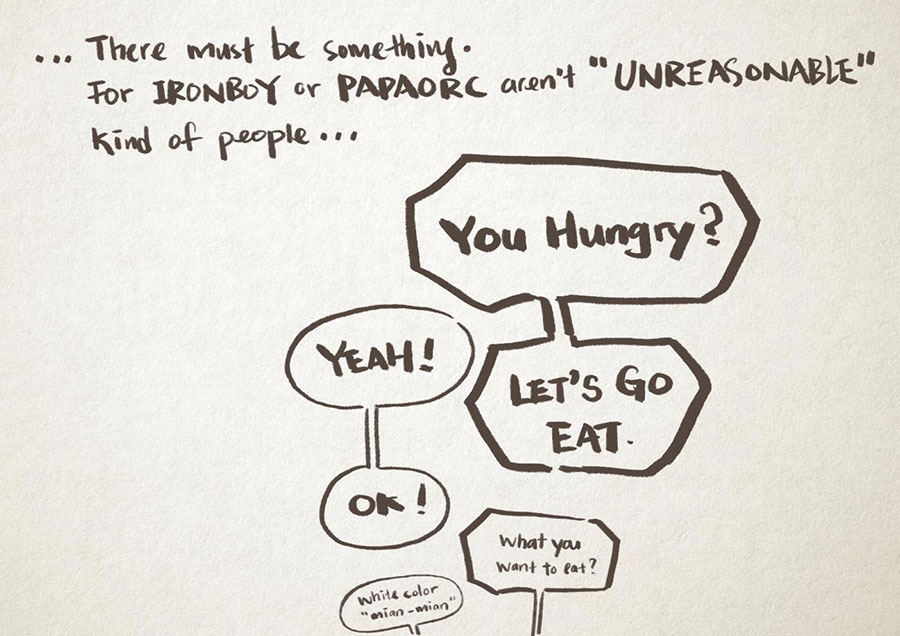 ... There must be something.
For IRONBOY or PAPAORC aren't "UNREASONABLE"
kind of people ...
You Hungry?
YEAH!
LET'S GO
EAT.
OK!
What you
want to eat?
White color
"mian-mian"